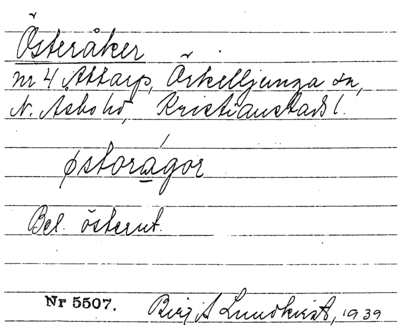 Österåker
nr 4 Åttarp, Örkelljunga sn,
N. Åsbo hd, Kristianstads l.
østorágor
Bel. österut.
Nr 5507. Birgit Lundkvist, 1939